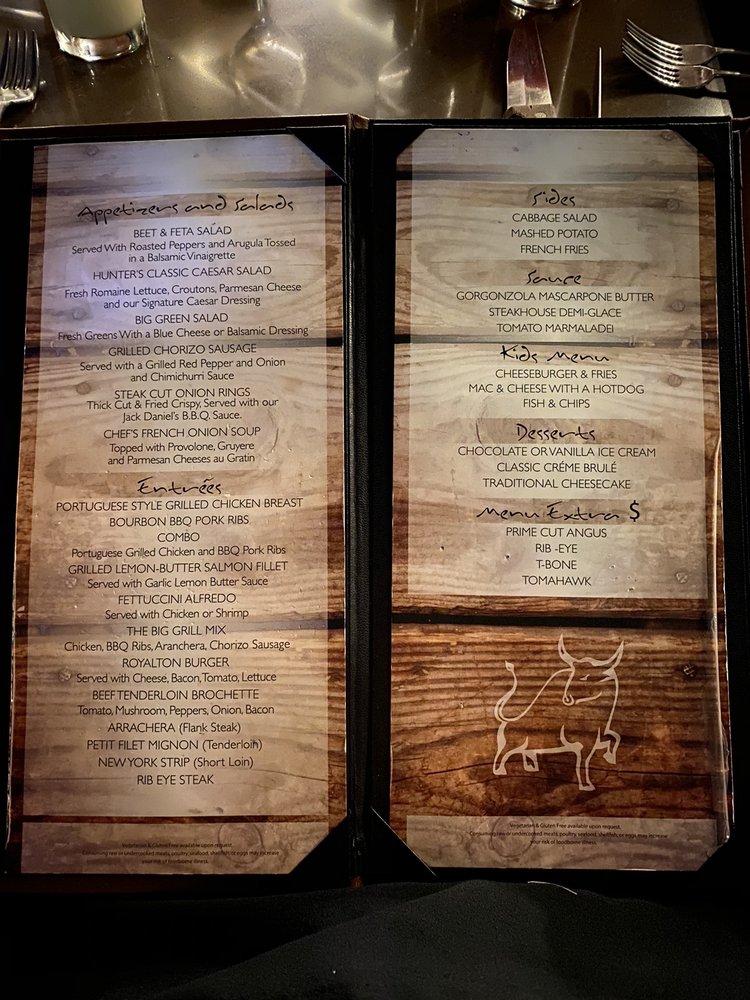 Appetizers and Salads
BEET & FETA SALAD
Served With Roasted Peppers and Arugula Tossed
in a Balsamic Vinaigrette
HUNTER'S CLASSIC CAESAR SALAD
Fresh Romaine Lettuce, Croutons, Parmesan Cheese
and our Signature Caesar Dressing
BIG GREEN SALAD
Fresh Greens With a Blue Cheese or Balsamic Dressing
GRILLED CHORIZO SAUSAGE
Served with a Grilled Red Pepper and Onion
and Chimichurri Sauce
STEAK CUT ONION RINGS
Thick Cut & Fried Crispy, Served with our
Jack Daniel's B.B.Q. Sauce.
CHEF'S FRENCH ONION SOUP
Topped with Provolone, Gruyere
and Parmesan Cheeses au Gratin
Entrées
PORTUGUESE STYLE GRILLED CHICKEN BREAST
BOURBON BBQ PORK RIBS
COMBO
Portuguese Grilled Chicken and BBQ Pork Ribs
GRILLED LEMON-BUTTER SALMON FILLET
Served with Garlic Lemon Butter Sauce
FETTUCCINI ALFREDO
Served with Chicken or Shrimp
THE BIG GRILL MIX
Chicken, BBQ Ribs, Aranchera, Chorizo Sausage
ROYALTON BURGER
Served with Cheese, Bacon, Tomato, Lettuce
BEEF TENDERLOIN BROCHETTE
Tomato, Mushroom, Peppers, Onion, Bacon
ARRACHERA (Flank Steak)
PETIT FILET MIGNON (Tenderloin)
NEW YORK STRIP (Short Loin)
RIB EYE STEAK
Vegetarian & Gluten Free available upon request.
Consuming raw or undercooked meats, poultry, seafood, shellfish, or eggs may increase
your risk of foodborne illness.
Sides
CABBAGE SALAD
MASHED POTATO
FRENCH FRIES
Sauce
GORGONZOLA MASCARPONE BUTTER
STEAKHOUSE DEMI-GLACE
TOMATO MARMALADEI
Kids Menu
CHEESEBURGER & FRIES
MAC & CHEESE WITH A HOTDOG
FISH & CHIPS
Desserts
CHOCOLATE OR VANILLA ICE CREAM
CLASSIC CRÉME BRULÉ
TRADITIONAL CHEESECAKE
Menu Extra $
PRIME CUT ANGUS
RIB -EYE
T-BONE
TOMAHAWK
Vegetarian & Gluten Free available upon request.
Consuming raw or undercooked meats, poultry, seafood, shellfish, or eggs may increase
your risk of foodborne illness.